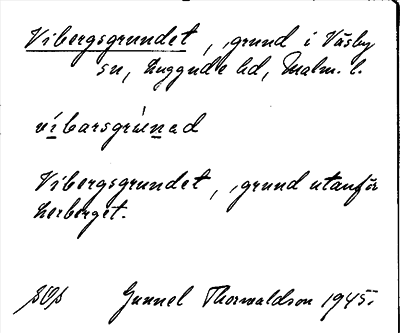 Vibergsgrundet, grund i Väsby
sn, Luggude hd, Malm. l.
vibarsgrunad
Vibergsgrundet, grund utanför
Lerberget.
Gunnel Thorwaldson 1945.